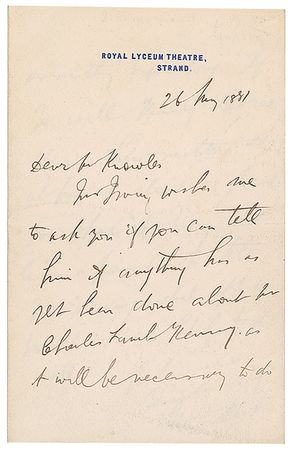 ROYAL LYCEUM THEATRE,
STRAND.
26 Aug 1881
Dear Mr Knowles
Mr Irving wishes me
to ask you if you can tell
him if anything has as
yet been done about Mr
Charles Lamb Kenney. as
it will be necessary to do